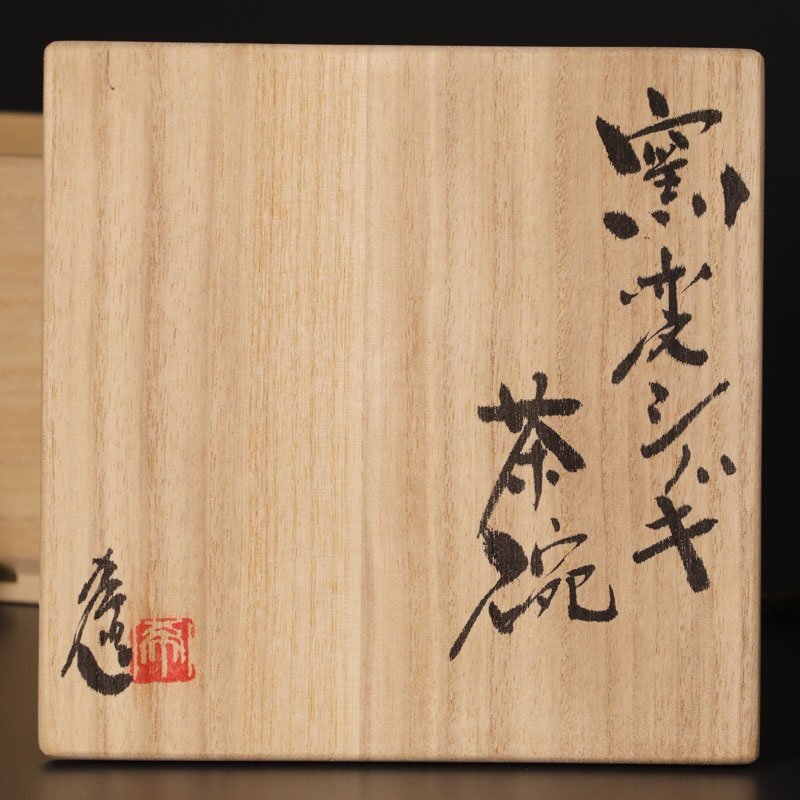 窯変シバキ
茶碗